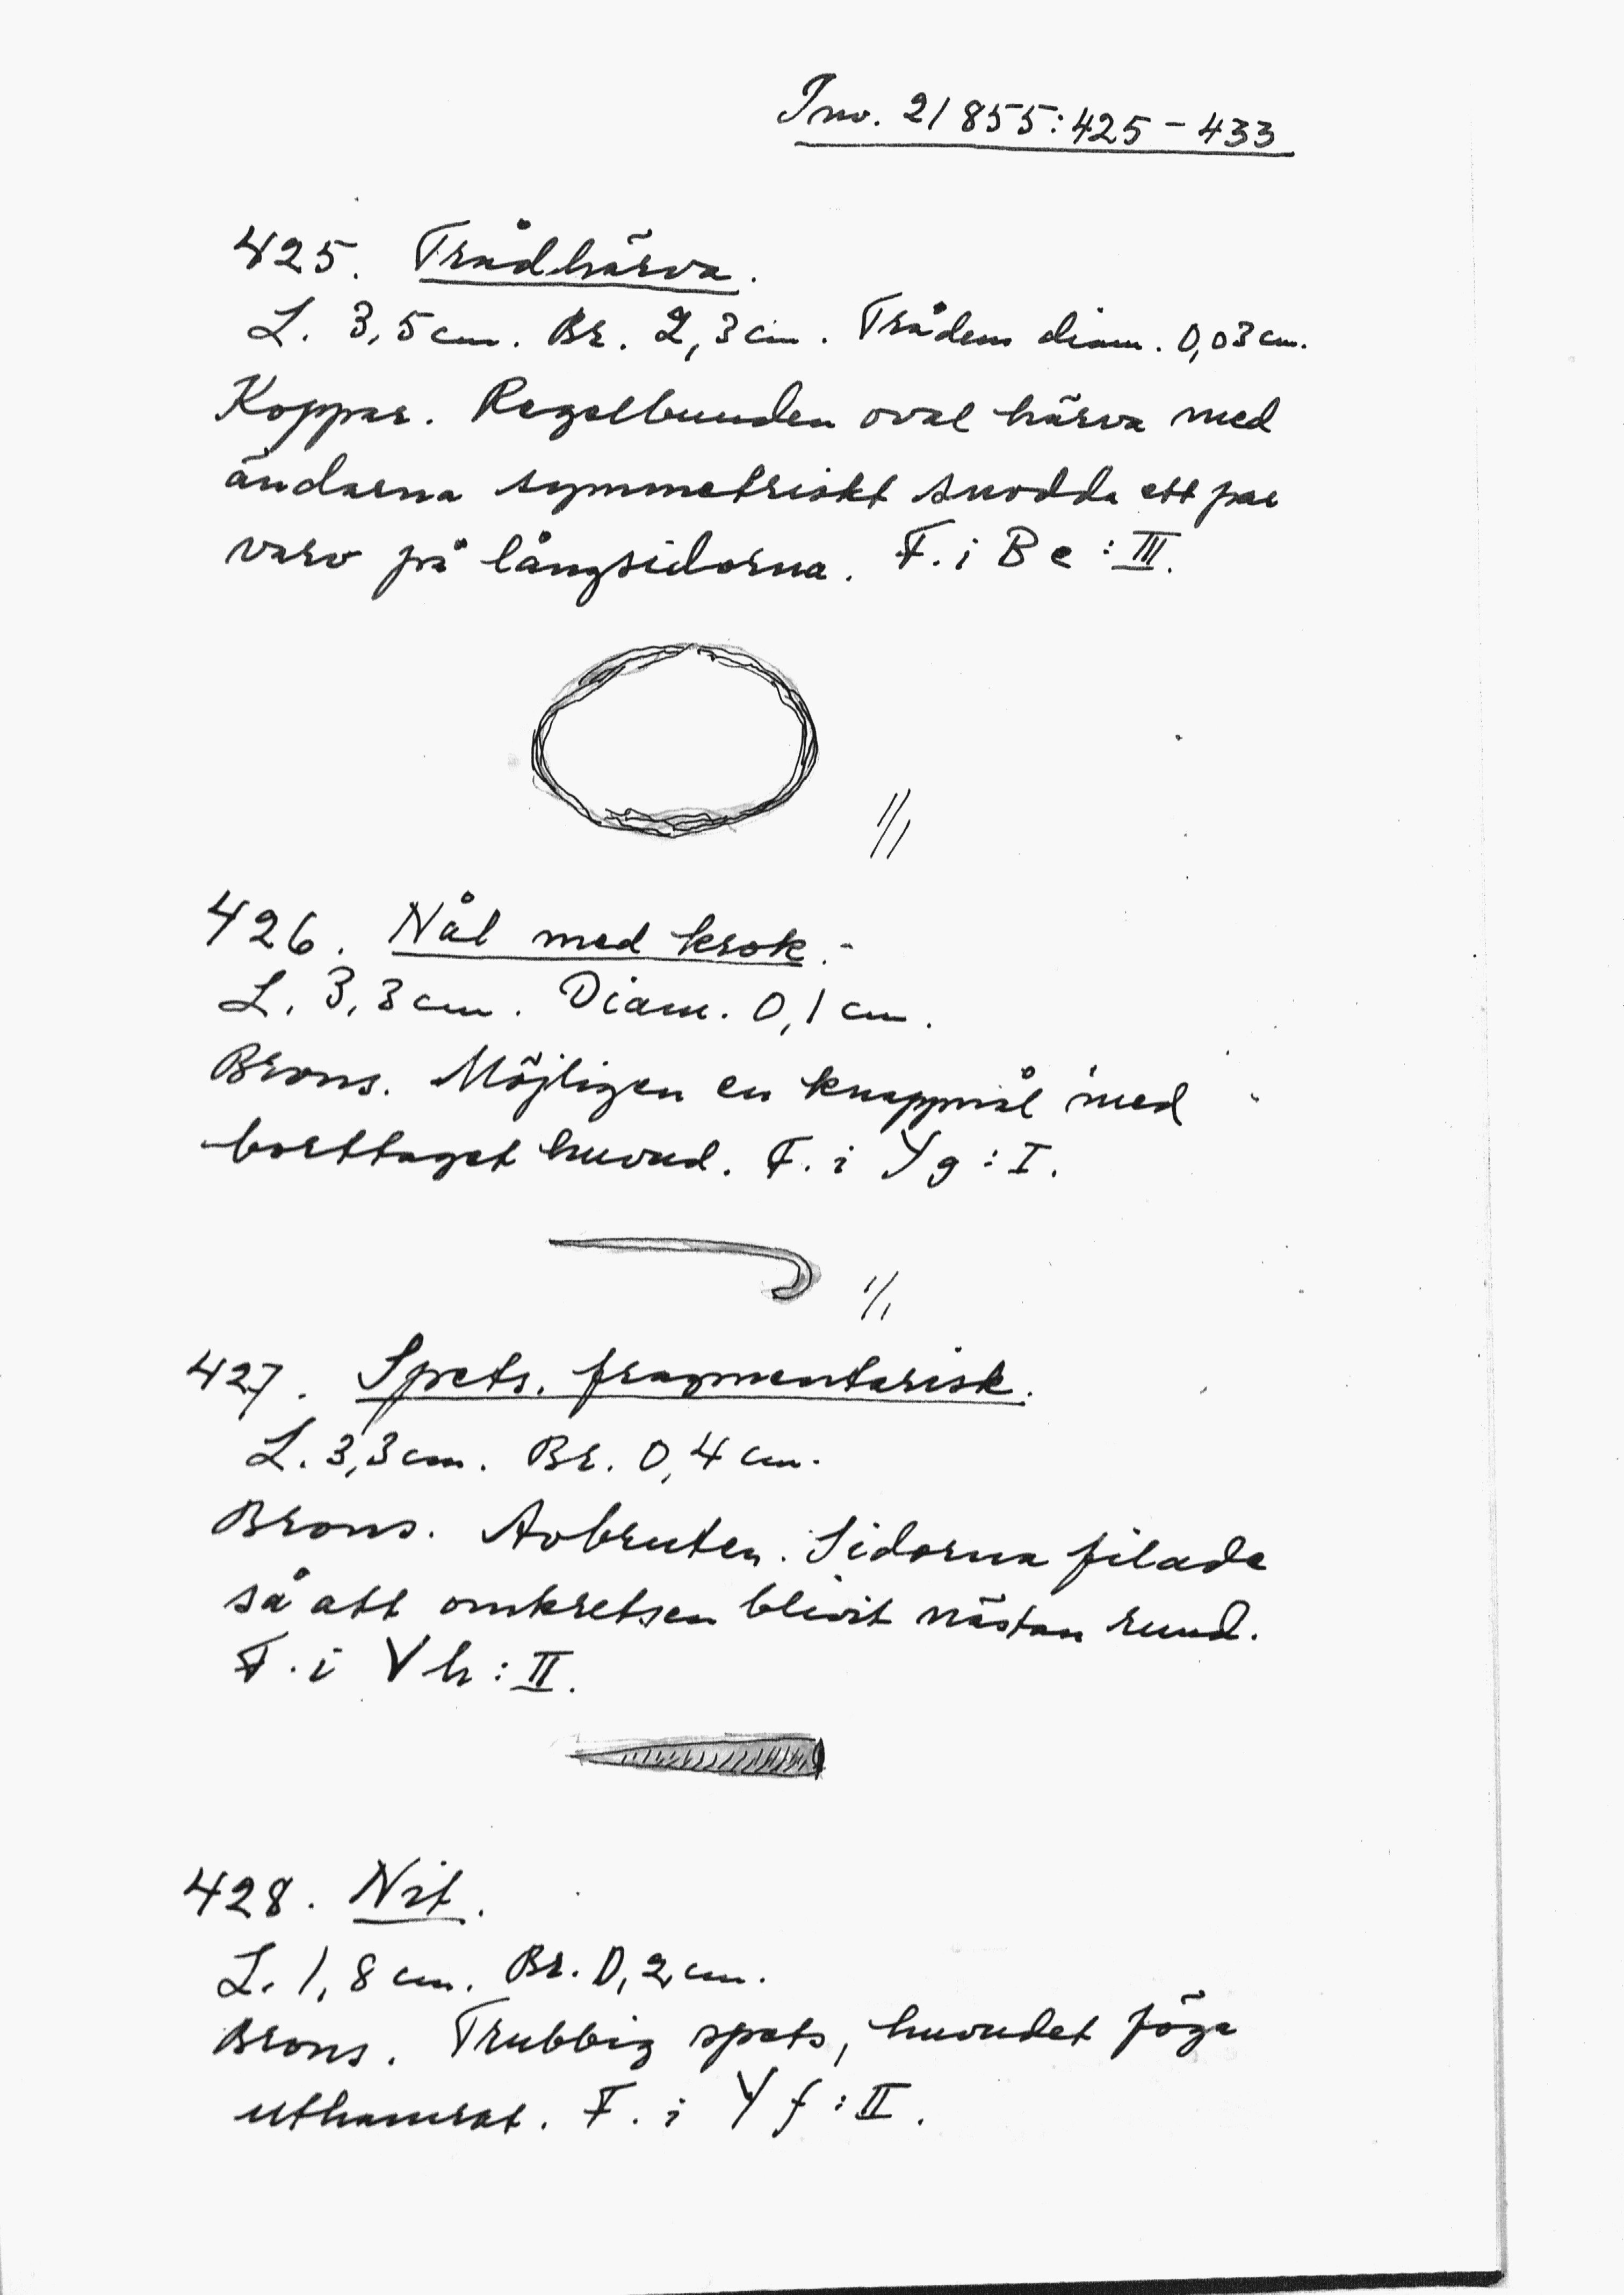 Inv. 21855:425-433
425. Trådhärva.
L. 3,5 cm. Br. 2,3 cm. Trådens diam. 0,03 cm.
Koppar. Regelbunden oval härva med
ändarna symmetriskt snodda ett par
varv på långsidorna. F. i Be:III.
1/1
426. Nål med krok.
L. 3,3 cm. Diam. 0,1 cm.
Brons. Möjligen en knappnål med
borttaget huvud. F. i Yg:I.
1/1
427. Spets, fragmentarisk.
L. 3,3 cm. Br. 0,4 cm.
Brons. Avbruten. Sidorna filade
så att omkretsen blivit nästan rund.
F. i Vh:II.
428. Nit.
L. 1,8 cm. Br. 0,2 cm.
Brons. Trubbig spets, huvudet föga
uthamrat. F. i Yf:II.